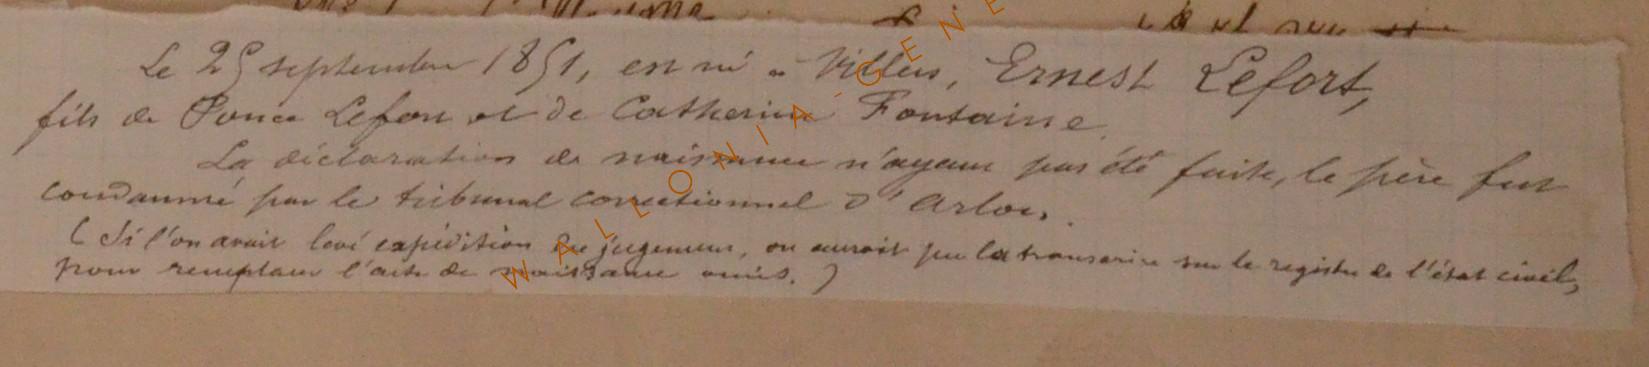 Le 25 septembre 1851, est né à Villers, Ernest Lefort,
fils de Ponce Lefort et de Catherine Fontaine.
La déclaration de naissance n'ayant pas été faite, le père fut
condamné par le tribunal correctionnel d'Arlon.
(Si l'on avait levé expédition du jugement, on aurait pu la transcrire sur le registre de l'état civil,
pour remplacer l'acte de naissance omis.)
WALLONIA-GENE